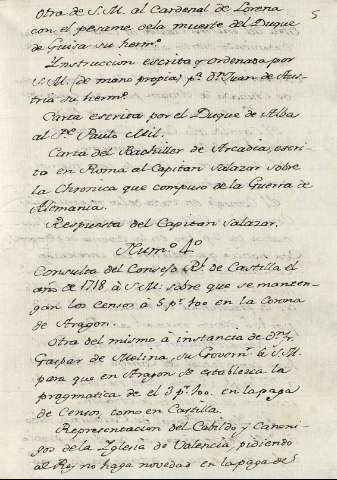 5
Otra de S. M. al Cardenal de Lorena
con el pesame de la muerte del Duque
de Guisa su herm.º
Instruccion escrita y ordenada por
S. M. (de mano propia) p.ª D.n Juan de Aus-
tria su herm.º
Carta escrita por el Duque de Alba
al P.e Paulo Mil.
Carta del Bachiller de Arcadia, escri-
ta en Roma al Capitan Salazar sobre
la Chronica que compuso de la Guerra de
Alemania.
Respuesta del Capitan Salazar.
Num.º 4.º
Consulta del Consejo R.l de Castilla el
año de 1718 à S. M. sobre que se manten-
gan los Censos à 5 p.r 100 en la Corona
de Aragon.
Otra del mismo à instancia de d.n
Gaspar de Molina, su Govern.r à S. M.
para que en Aragon se establezca la
pragmatica de el 3 p.r 100. en la paga
de Censos, como en Castilla.
Representacion del Cabildo y Canoni-
gos de la Iglesia de Valencia, pidiendo
al Rey no haga novedad en la paga de